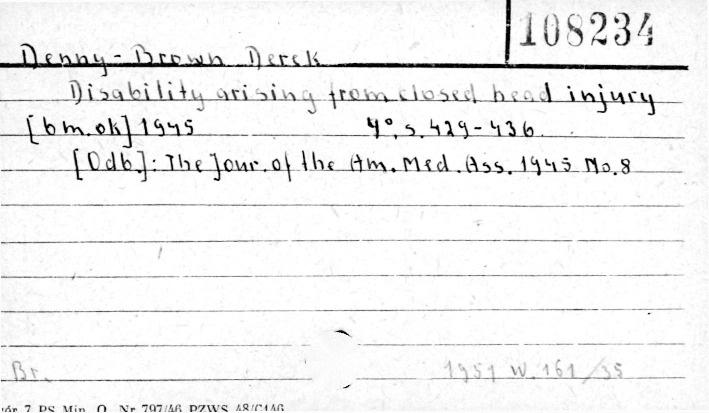 108234
Denny-Brown Derek
Disability arising from closed head injury
[bm.ok] 1945 4°, s. 429-436.
[Odb.]: The Jour. of the Am. Med. Ass. 1945 No. 8
Br. 1951 W. 161/35
7 PS Min. O. Nr 797/46 PZWS 48/C146